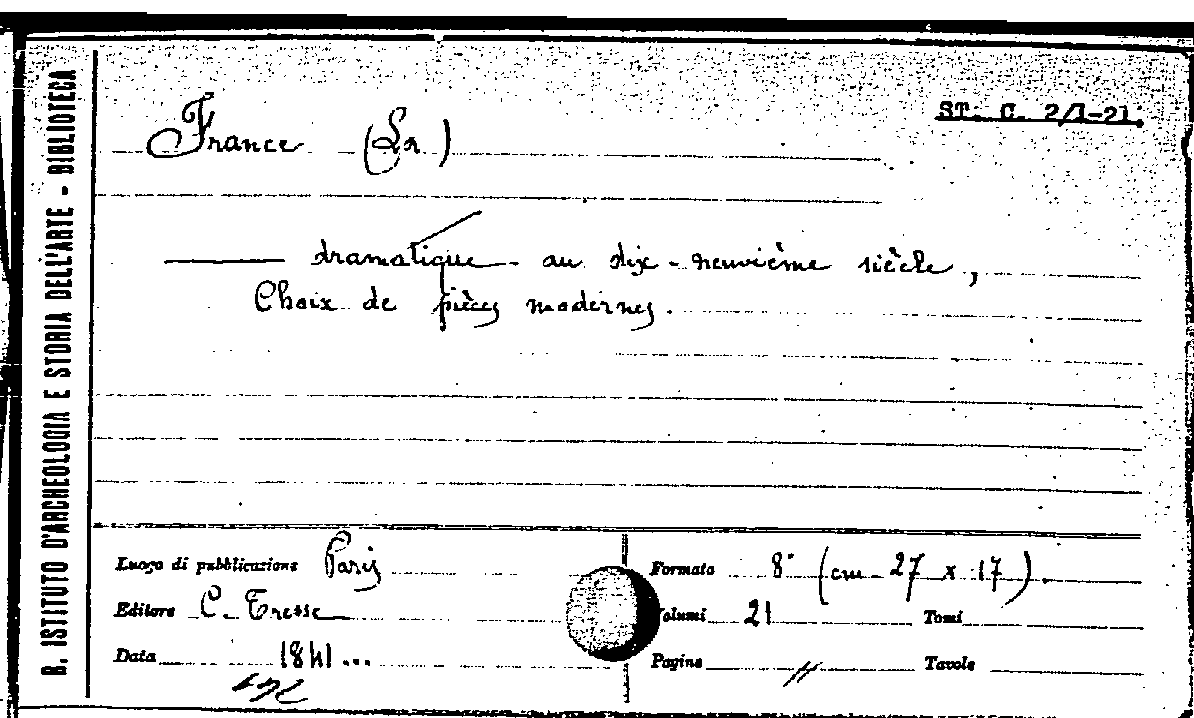 R. ISTITUTO D'ARCHEOLOGIA E STORIA DELL'ARTE - BIBLIOTECA
ST. C. 2/1-21.
France (La)
——— dramatique au dix-neuvième siècle,
Choix de pièces modernes.
Luogo di pubblicazione Paris
Formato 8° (cm 27 x 17).
Editore C. Tresse
Volumi 21 Tomi
Data 1841...
Pagine // Tavole